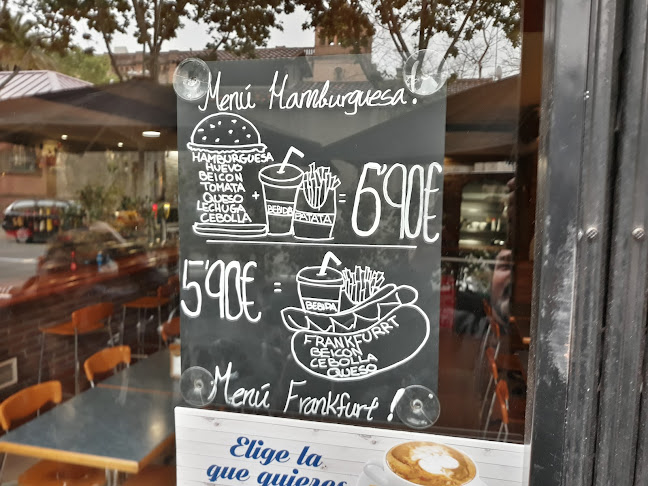 Menú Hamburguesa!
HAMBURGUESA
HUEVO
BEICON
TOMATA
QUESO
LECHUGA
CEBOLLA
+
BEBIDA
PATATA
= 6'90€
5'90€ =
BEBIDA
FRANKFURRT
BEICON
CEBOLLA
QUESO
Menú Frankfurt!
Elige la
que quieres